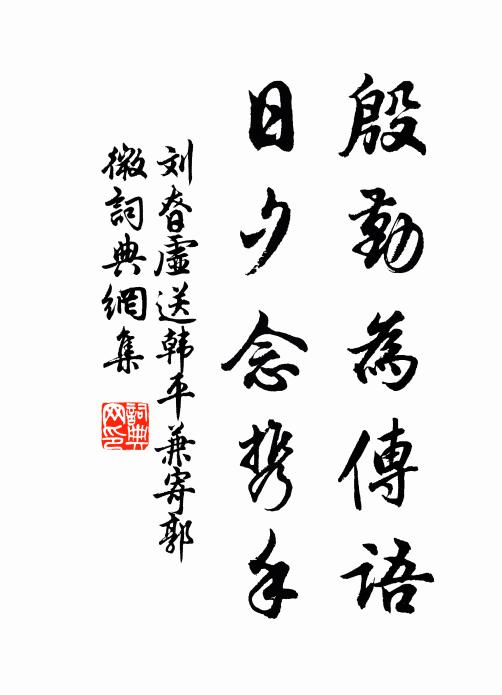 殷勤為傳語
日夕念攜手
刘昚虛送韩平兼寄郭
微詞典網集
詞典网印